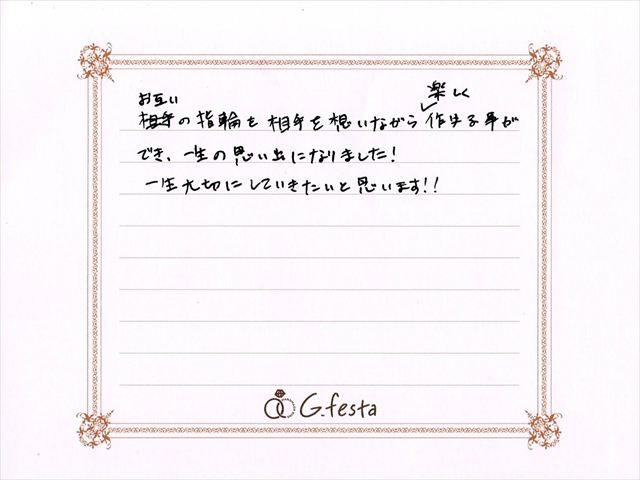 お互い
楽しく
相手の指輪を相手を想いながら作成る事が
でき、一生の思い出になりました!
一生大切にしていきたいと思います!!
G.festa